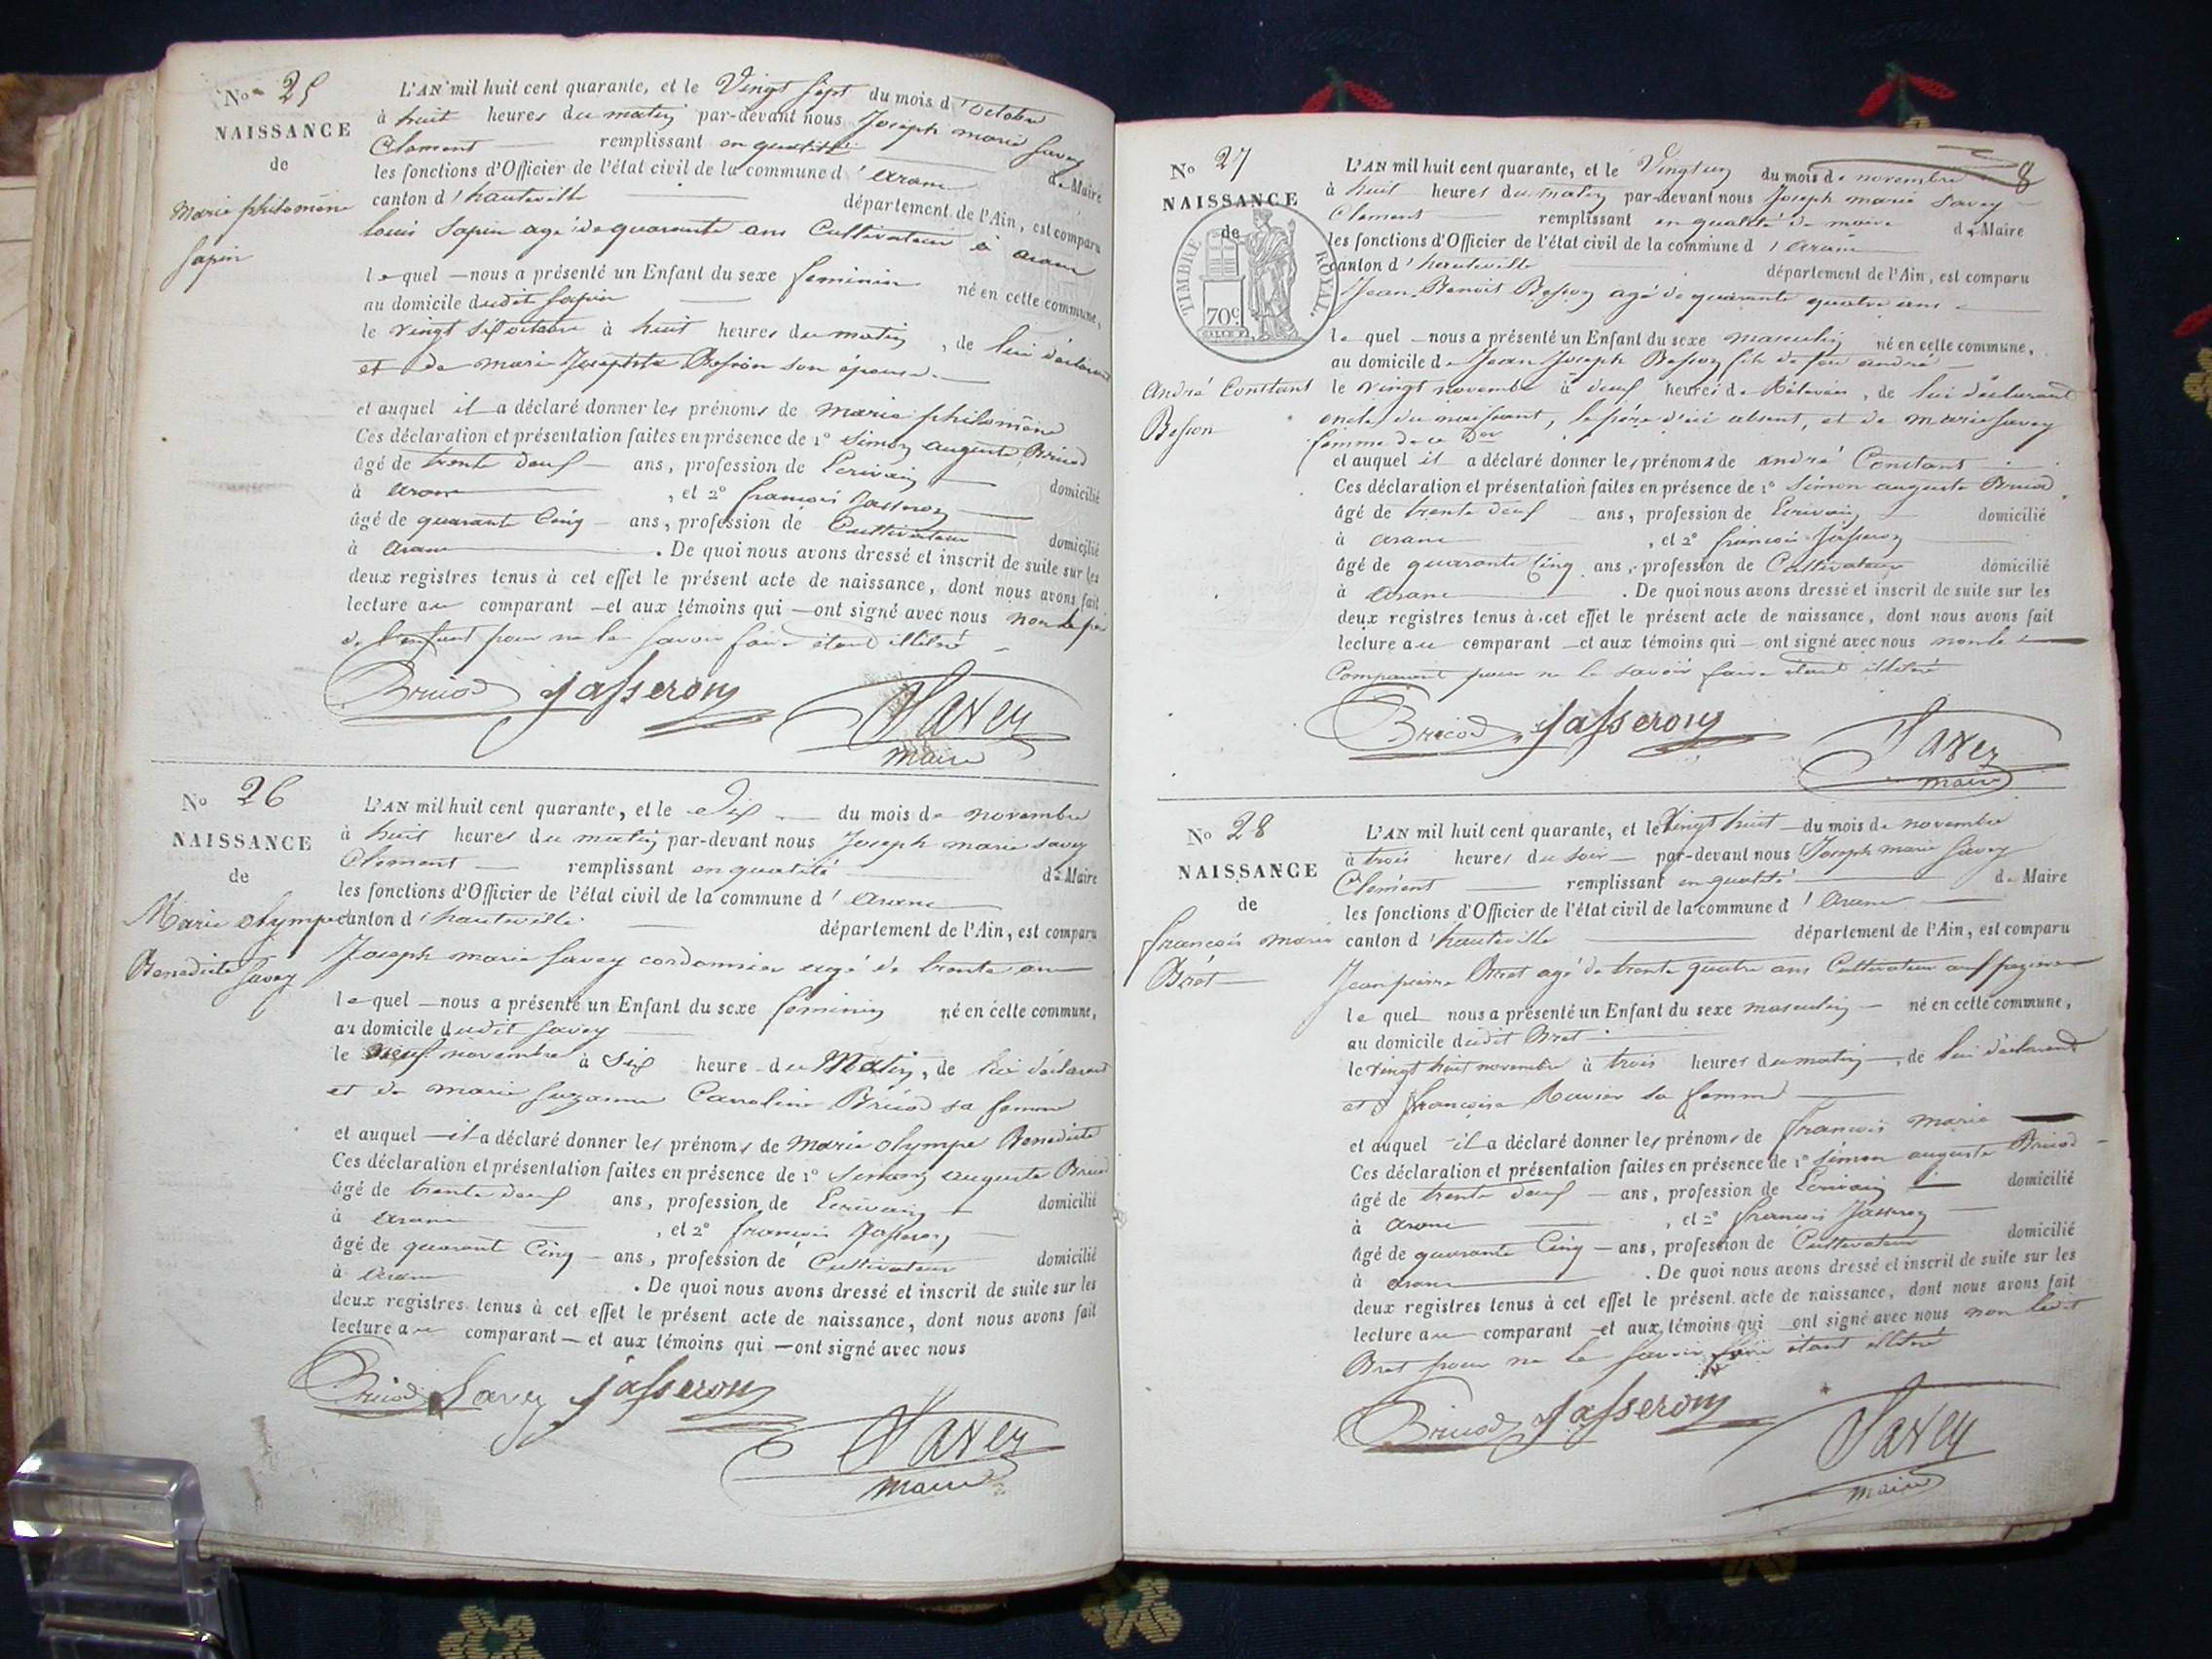 No 25
NAISSANCE
de
Marie philomène
Sapin
L'AN mil huit cent quarante, et le Vingt Sept du mois d'octobre
à huit heures du matin par-devant nous Joseph marie Savey
Clement remplissant en qualité de Maire
les fonctions d'Officier de l'état civil de la commune d'aranc
canton d'hauteville département de l'Ain, est comparu
louis Sapin agé de quarante ans Cultivateur à aranc
lequel nous a présenté un Enfant du sexe feminin né en cette commune,
au domicile dudit Sapin
le vingt six octobre à huit heures du matin, de lui déclarant
et de marie Josephte Besson son épouse
et auquel il a déclaré donner les prénoms de marie philomène
Ces déclaration et présentation faites en présence de 1° Simon auguste Bricod
âgé de trente deux ans, profession de Ecrivain domicilié
à aranc, et 2° françois Jasseron
âgé de quarante Cinq ans, profession de Cultivateur domicilié
à aranc. De quoi nous avons dressé et inscrit de suite sur les
deux registres tenus à cet effet le présent acte de naissance, dont nous avons fait
lecture au comparant et aux témoins qui ont signé avec nous non le père
de l'enfant pour ne le Savoir faire étant illitéré
Bricod Jasseron Savey
maire
No 26
NAISSANCE
de
Marie olympe
Benedicte Savey
L'AN mil huit cent quarante, et le dix du mois de novembre
à huit heures du matin par-devant nous Joseph marie Savey
Clement remplissant en qualité de Maire
les fonctions d'Officier de l'état civil de la commune d'aranc
canton d'hauteville département de l'Ain, est comparu
Joseph marie Savey cordonnier agé de trente ans
lequel nous a présenté un Enfant du sexe feminin né en cette commune,
au domicile dudit Savey
le neuf novembre à Six heure du Matin, de lui déclarant
et de marie Suzanne Caroline Bricod sa femme
et auquel il a déclaré donner les prénoms de Marie olympe Benedicte
Ces déclaration et présentation faites en présence de 1° Simon auguste Bricod
âgé de trente deux ans, profession de Ecrivain domicilié
à aranc, et 2° françois Jasseron
âgé de quarante Cinq ans, profession de Cultivateur domicilié
à aranc. De quoi nous avons dressé et inscrit de suite sur les
deux registres tenus à cet effet le présent acte de naissance, dont nous avons fait
lecture au comparant et aux témoins qui ont signé avec nous
Bricod Savey Jasseron
Savey
maire
8
No 27
NAISSANCE
de
TIMBRE ROYAL.
70c
André Constant
Besson
L'AN mil huit cent quarante, et le Vingt un du mois de novembre
à huit heures du matin par-devant nous Joseph marie Savey
Clement remplissant en qualité de maire de Maire
les fonctions d'Officier de l'état civil de la commune d'aranc
canton d'hauteville département de l'Ain, est comparu
Jean Benoit Besson agé de quarante quatre ans
lequel nous a présenté un Enfant du sexe masculin né en cette commune,
au domicile de Jean Joseph Besson fils de feu andré
le vingt novembre à deux heures de Rélevée, de lui déclarant
oncle du naissant, le père d'ici absent, et de marie Savey
femme de ce der
et auquel il a déclaré donner les prénoms de andré Constant
Ces déclaration et présentation faites en présence de 1° Simon auguste Bricod
âgé de trente deux ans, profession de Ecrivain domicilié
à aranc, et 2° françois Jasseron
âgé de quarante Cinq ans, profession de Cultivateur domicilié
à aranc. De quoi nous avons dressé et inscrit de suite sur les
deux registres tenus à cet effet le présent acte de naissance, dont nous avons fait
lecture au comparant et aux témoins qui ont signé avec nous non le
Comparant pour ne le savoir faire étant illitéré
Bricod Jasseron Savey
maire
No 28
NAISSANCE
de
françois marie
Bret
L'AN mil huit cent quarante, et le Vingt huit du mois de novembre
à trois heures du soir par-devant nous Joseph marie Savey
Clément remplissant en qualité de Maire
les fonctions d'Officier de l'état civil de la commune d'aranc
canton d'hauteville département de l'Ain, est comparu
Jean pierre Bret agé de trente quatre ans Cultivateur
lequel nous a présenté un Enfant du sexe masculin né en cette commune,
au domicile dudit Bret
le vingt huit novembre à trois heures du matin, de lui déclarant
et françoise Ravier sa femme
et auquel il a déclaré donner les prénoms de françois marie
Ces déclaration et présentation faites en présence de 1° Simon auguste Bricod
âgé de trente deux ans, profession de Ecrivain domicilié
à aranc, et 2° françois Jasseron
âgé de quarante Cinq ans, profession de Cultivateur domicilié
à aranc. De quoi nous avons dressé et inscrit de suite sur les
deux registres tenus à cet effet le présent acte de naissance, dont nous avons fait
lecture au comparant et aux témoins qui ont signé avec nous non ledit
Bret pour ne le Savoir faire étant illitéré
Bricod Jasseron Savey
maire